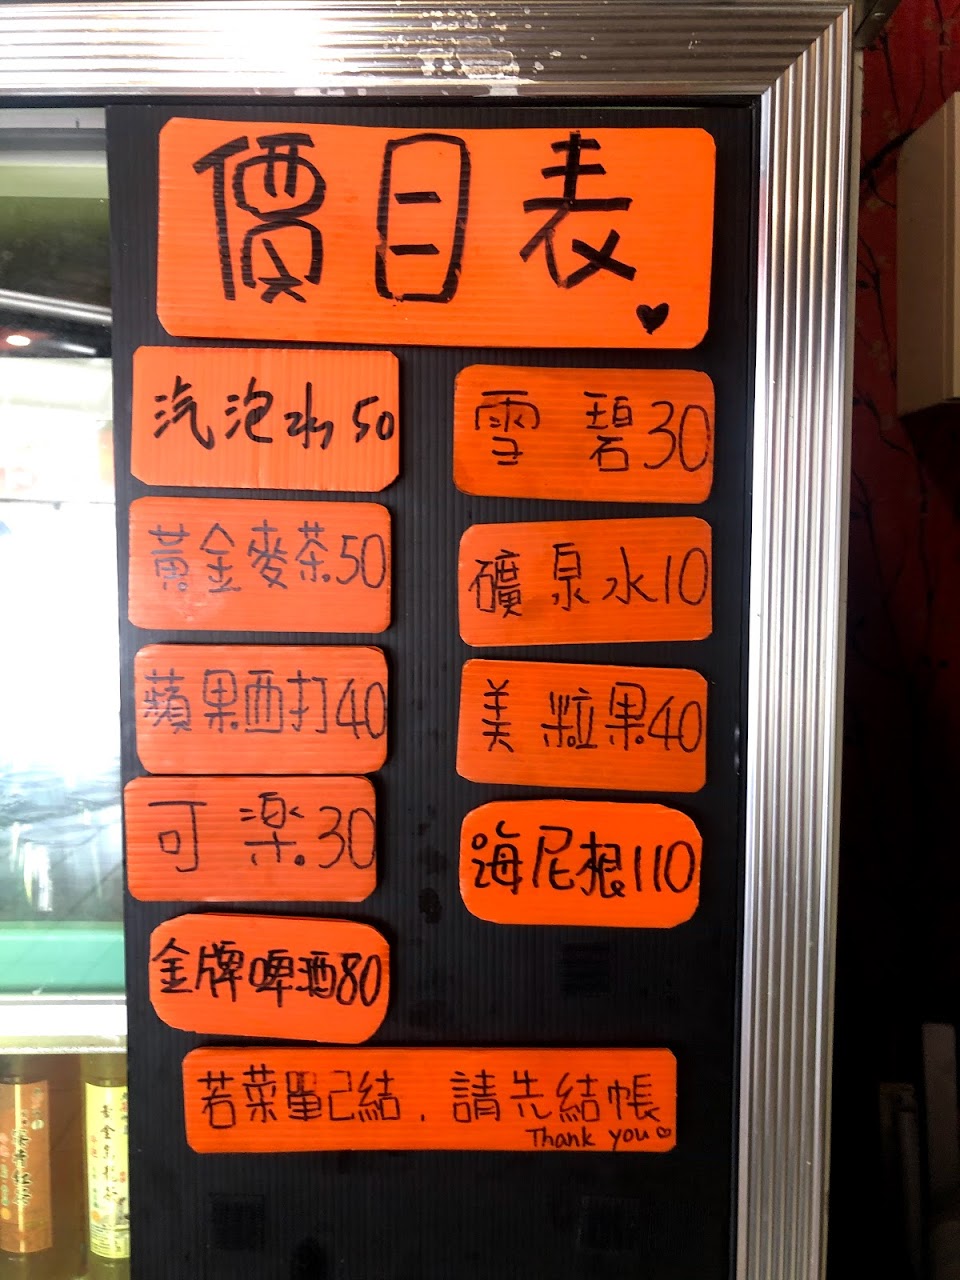 價目表
汽泡水50
雪碧30
黃金麥茶50
礦泉水10
蘋果西打40
美粒果40
可楽30
海尼根110
金牌啤酒80
若菜單已結．請先結帳
Thank you